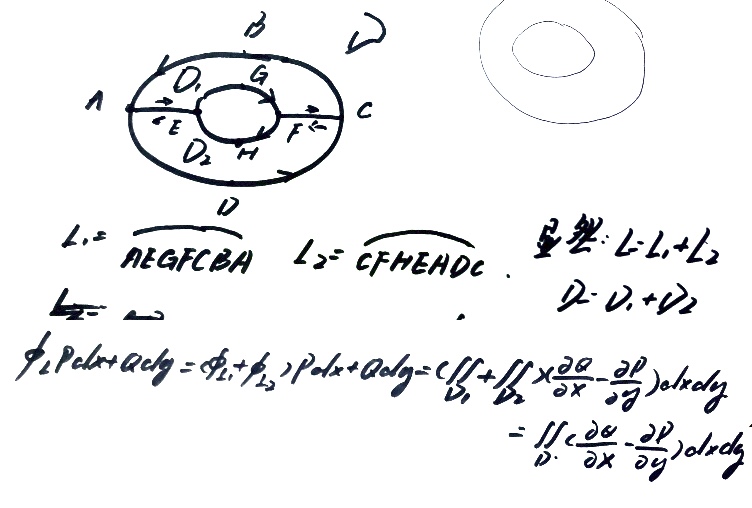 B
D₁ G
A E F C
D₂ H
D
L₁= AEGFCBA L₂= CFHEADC . L=L₁+L₂
D=D₁+D₂
∮_L Pdx+Qdy=(∮_L₁+∮_L₂)Pdx+Qdy=(∬_D₁+∬_D₂)(∂Q/∂x-∂P/∂y)dxdy
=∬_D(∂Q/∂x-∂P/∂y)dxdy